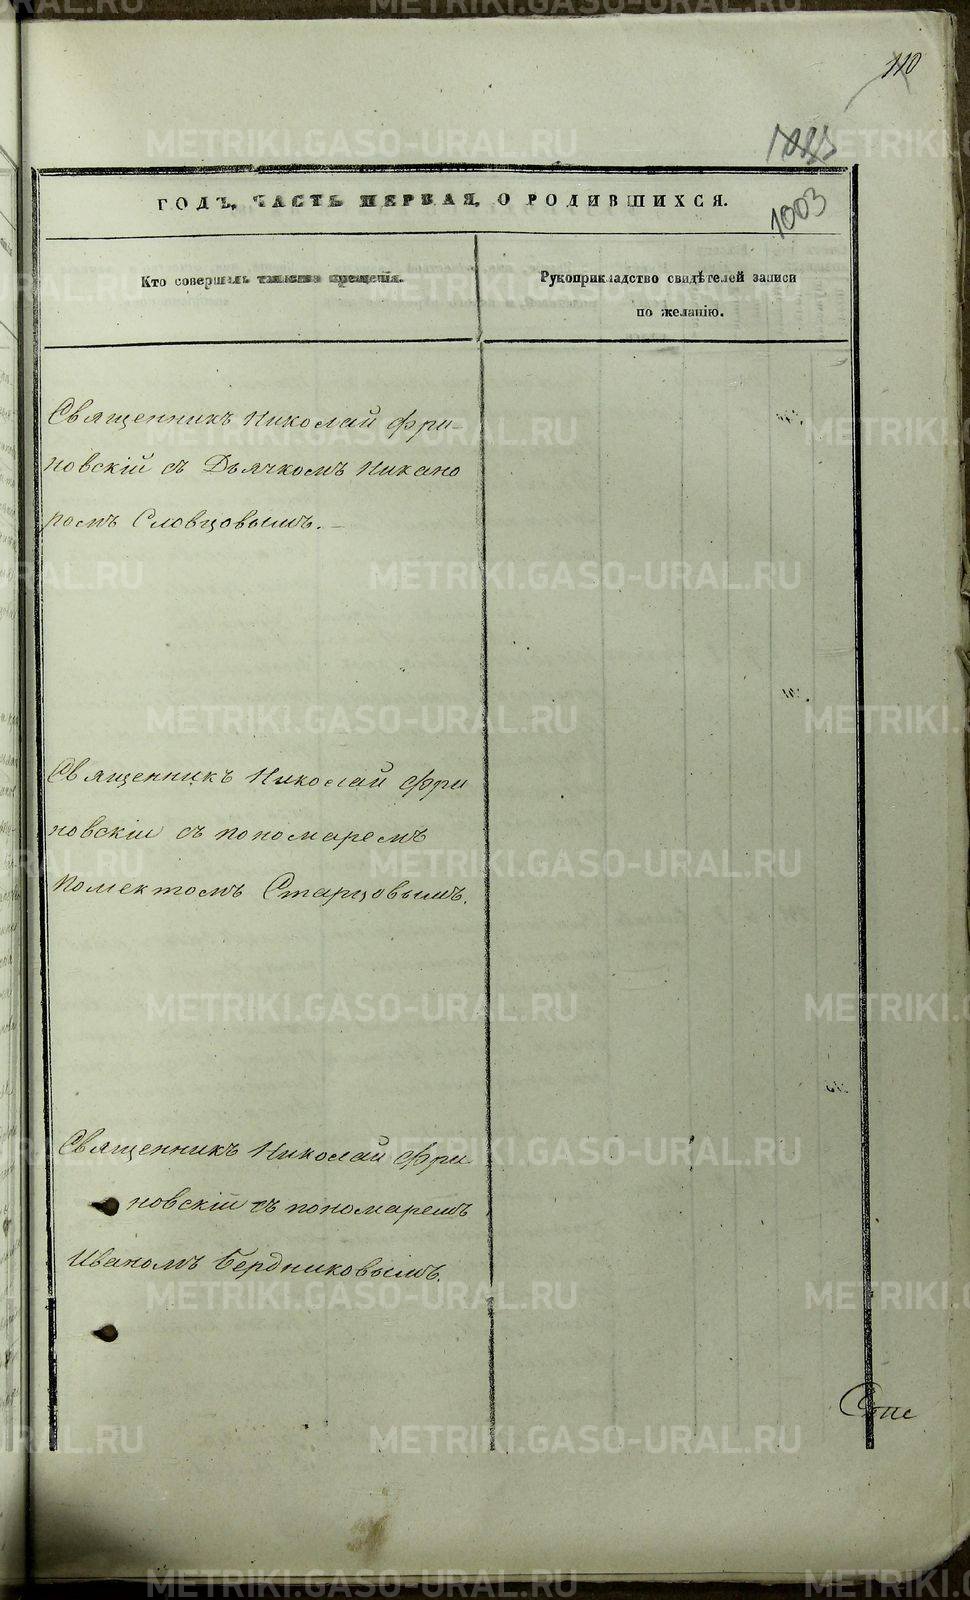 110
1003
ГОДЪ, ЧАСТЬ ПЕРВАЯ, О РОДИВШИХСЯ.
Кто совершалъ таинство крещенія.
Рукоприкладство свидѣтелей записи
по желанію.
Священникъ Николай Фри-
новскій съ Дьячкомъ Никано
ромъ Словцовымъ.
Священникъ Николай Фри
новскій съ пономаремъ
Полектомъ Старцовымъ.
Священникъ Николай Фри
новскій съ пономаремъ
Иваномъ Бердниковымъ.
METRIKI.GASO-URAL.RU